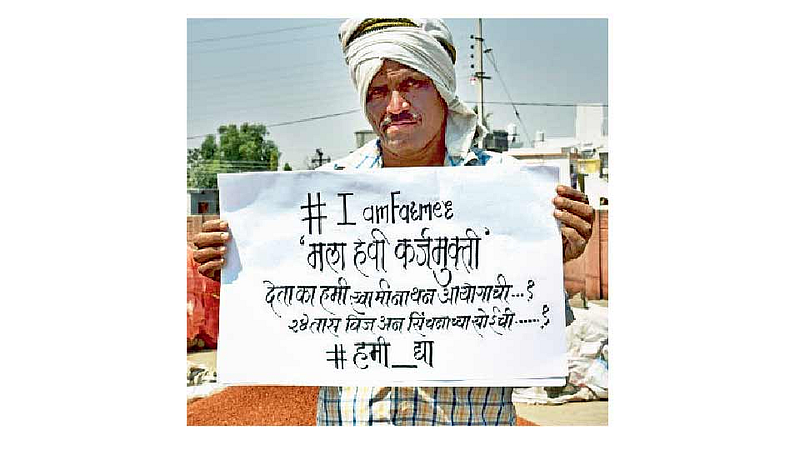 # I amFarmer
'मला हवी कर्जमुक्ती'
देता का हमी स्वामीनाथन आयोगाची...?
२४ तास विज अन सिंचनाच्या सोईची......?
# हमी_द्या